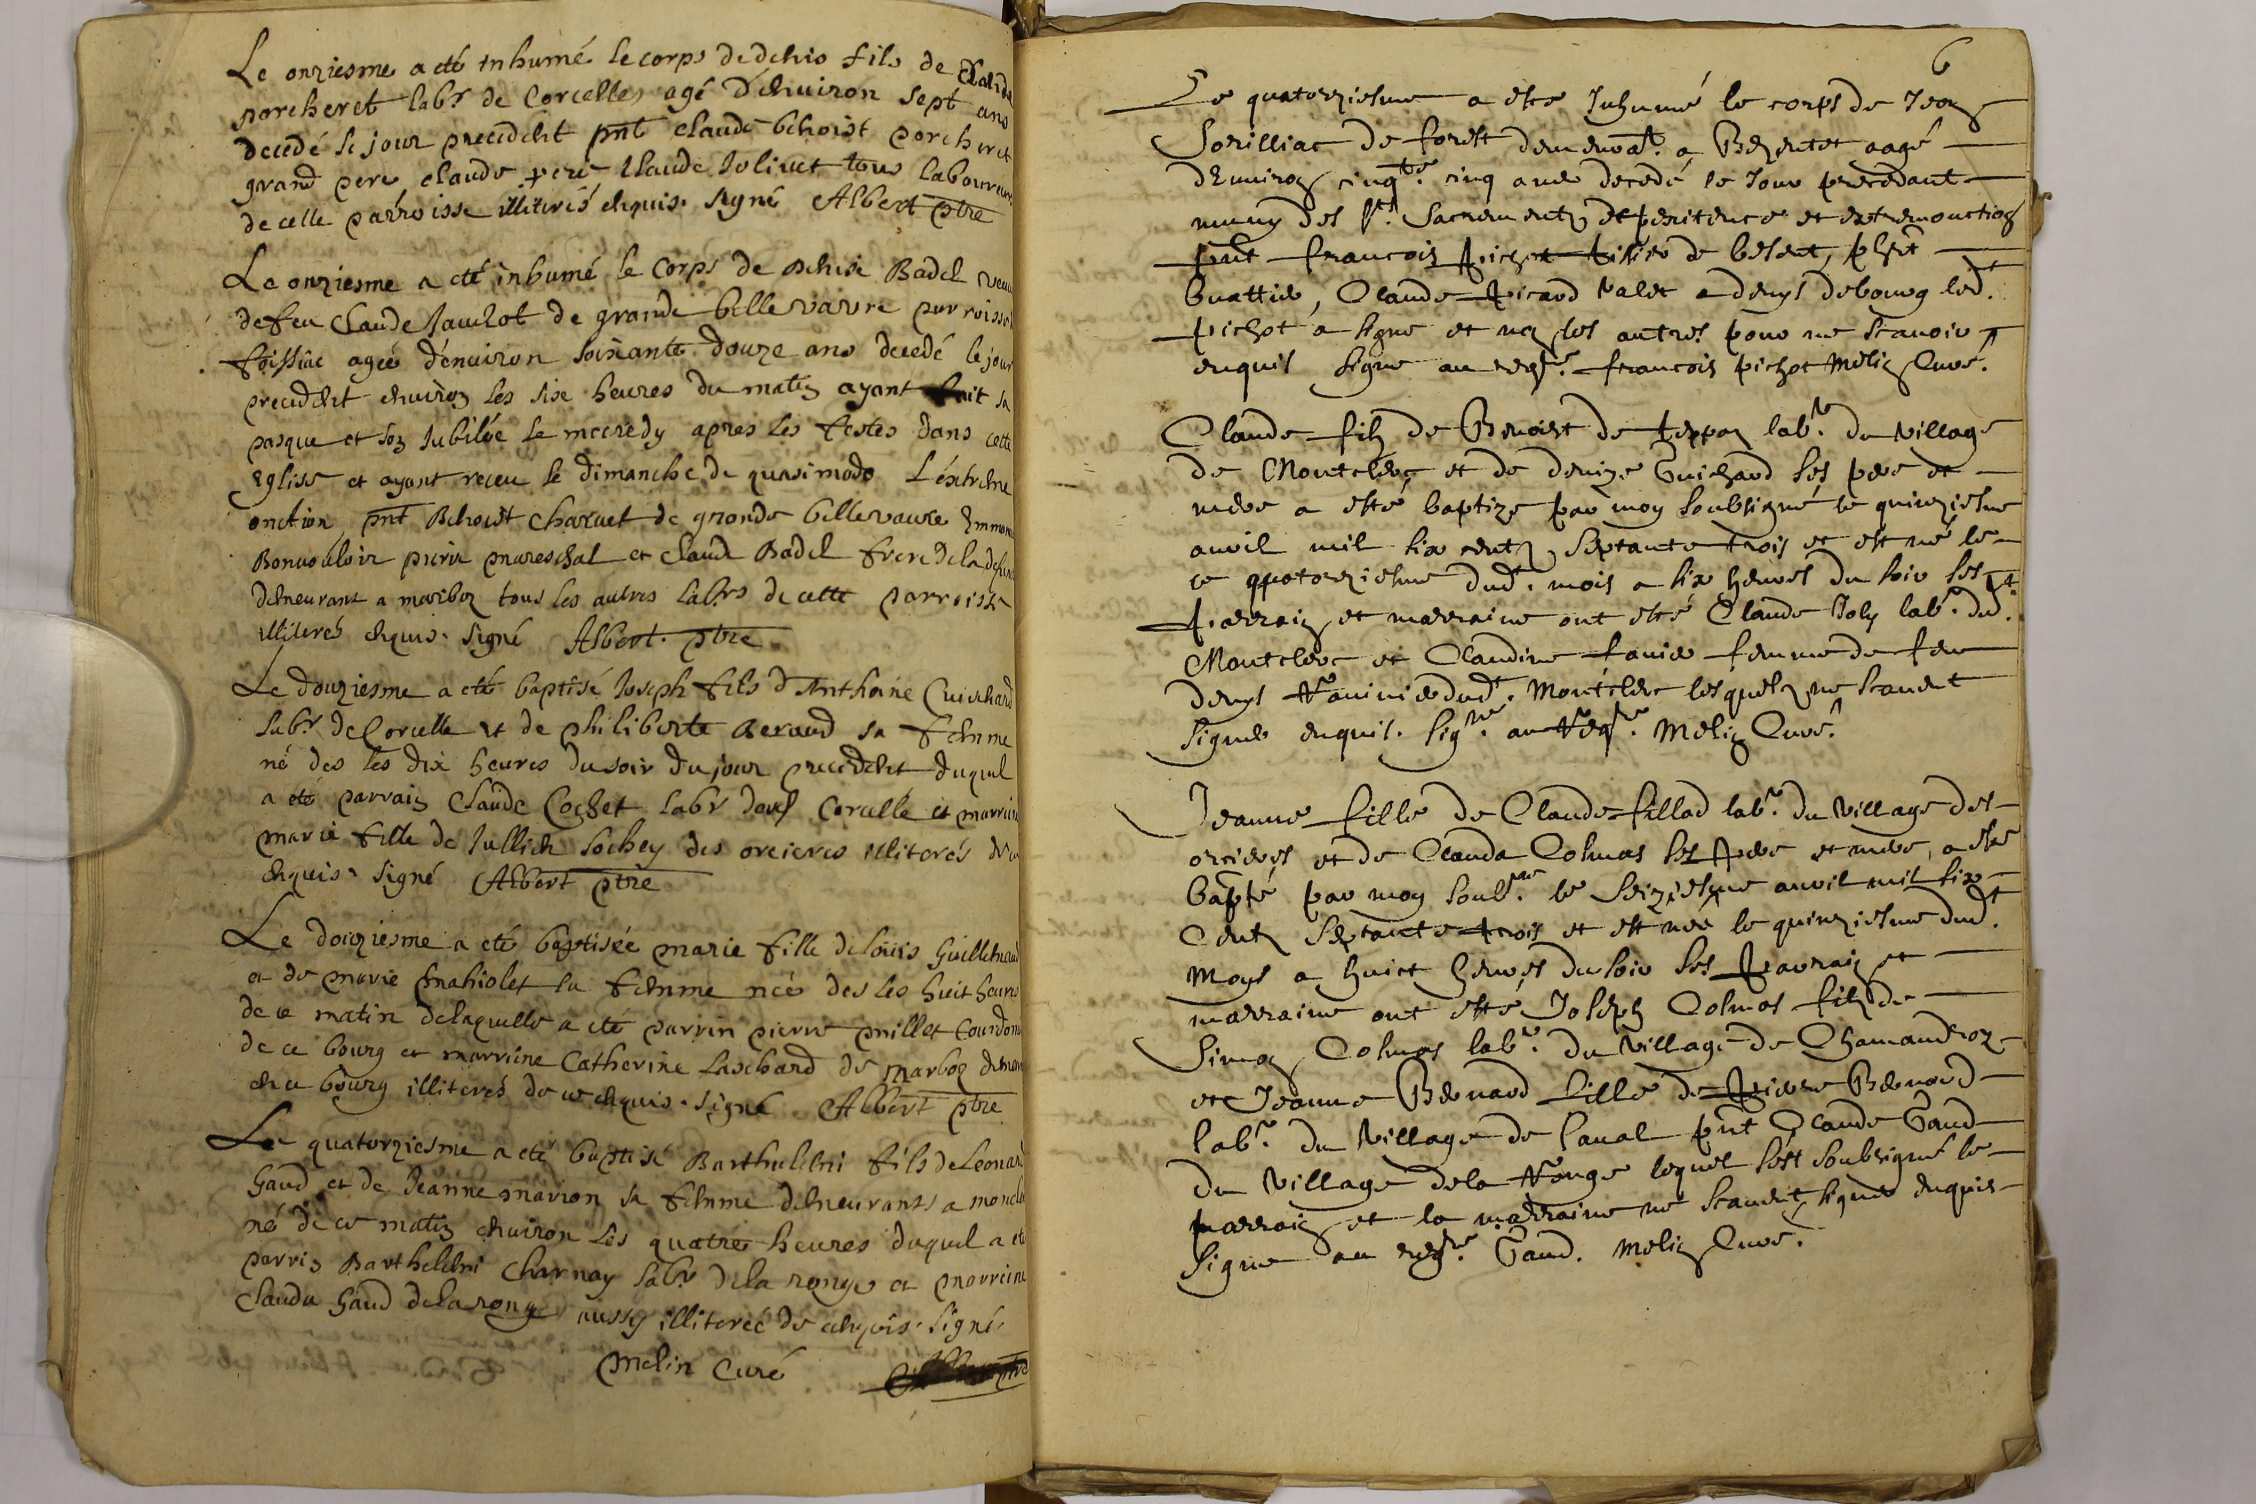 Le onziesme a eté inhumé le corps de denis fils de Claude
porcheret labr de Corcelles agé d'enuiron sept ans
decedé le jour precedent pnt claude benoist porcheret
grand pere claude pere Claude Joliuet tous laboureurs
de celle parroisse illiterés enquis. signé Albert ptre
Le onziesme a eté inhumé le Corps de denise Badel veuue
de feu Claude Jauchot de grande belleuavre parroisse
foissiac agée d'enuiron soixante douze ans decedé le jour
precedent enuiron les six heures du matin ayant fait sa
pasque et son Jubilée le mecredy apres les festes dans cette
Eglise et ayant receu le dimanche de quasimodo L'extreme
onction pnt Benoist Charuet de grande belleuavre Emmon
Bonuouloir pierre mareschal et Claude Badel frere de la defunte
demeurant a marboz tous les autres labrs de cette parroisse
illiterés enquis. signé Albert. ptre
Le douziesme a eté baptisé Joseph fils d'Anthoine Cuischard
labr de Corcelle et de philiberte Beraud sa femme
né des les dix heures du soir du jour precedent duquel
a eté parrain Claude Cochet labr dud Corcelle et marraine
marie fille de Jullien Sochey des orcieres illiterés de ce
enquis. signé Albert ptre
Le douziesme a eté baptisée marie fille de loüis Guillemaud
et de marie mahiolet sa femme née des les huit heures
de ce matin de laquelle a eté parrin pierre millet Courdon
de ce bourg et marreine Catherine Laschard de marboz demeurant
en ce bourg illiterés de ce enquis. signé Albert ptre
Le quatorziesme a eté baptisé Barthelemi fils de Leonard
Gaud et de Jeanne marion sa femme demeurants a moncle
né de ce matin enuiron les quatre heures duquel a eté
parrin Barthelemi Charnay labr de la ronge et marreine
Clauda Gaud de la ronge aussy illiterée de ce enquis. signé.
Melin Curé
6
Le quatorziesme a esté Inhumé le corps de Jean
Sorilliac de forest demeurat. a Bezentet aagé
d'Enuiron cinqte. cinq ans decedé le Jour precedant
muny des st. Sacrements de penitence et extremonction
pnt francois pichot de besent, phet
Guattier, Claude picard valet a denys debourg led.
pichot a signe et non les autres pour ne scauoir
enquis signe au regre. francois pichot Melin Curé.
Claude filz de Benoist de teppon labr. du village
de Montclerc et de denize Guichard ses pere et
mere a esté baptize par moy soubsigné le quinziesme
auril mil six centz septante trois et est né le
quatorziesme dud. mois a six heures du soir ses
parrain et marraine ont esté Claude Joly labr. dud.
Montclerc et Claudine fauier femme de feu
denys dud. Montclerc lesquelz ne scauent
signer enquis. signe. au Regre. Melin Curé.
Jeanne fille de Claude fillod labr. du village des
orcieres et de Clauda Colmas ses pere et mere, a esté
bapté par moy soubne. le seiziesme auril mil six
Centz septante trois et est née le quinziesme dud.
moys a huict heures du soir ses parrain et
marraine ont esté Joseph Colmas filz de
Simon Colmas labr. du village de Chamandroz
et Jeanne Bernard fille de pierre Bernard
labr. du village de laual pnt Claude Gaud
du village dela Ronge lequel s'est soubsigné le
parrain et la marraine ne scauent signer enquis
signe au regre. Gaud. Melin Curé.